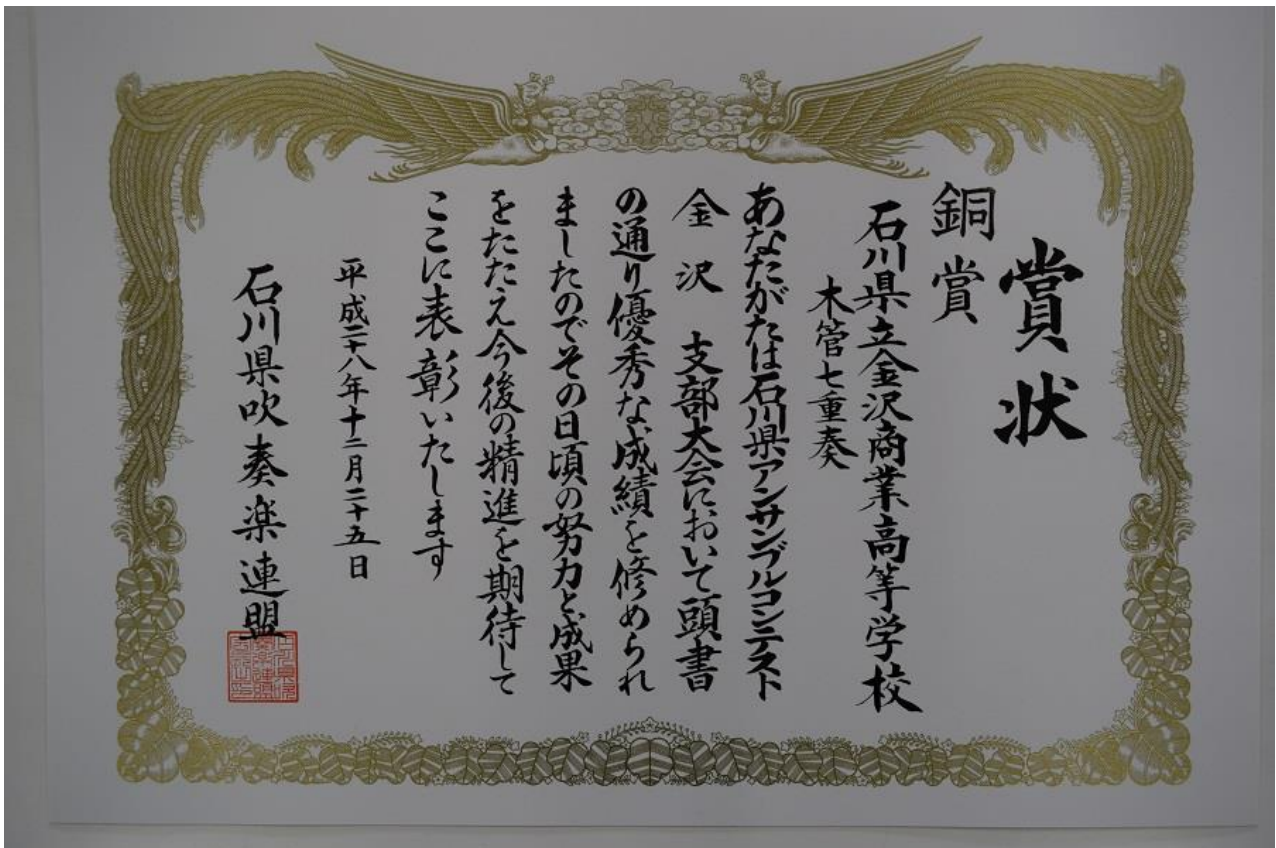 賞状
銅賞
石川県立金沢商業高等学校
木管七重奏
あなたがたは石川県アンサンブルコンテスト
金沢 支部大会において頭書
の通り優秀な成績を修められ
ましたのでその日頃の努力と成果
をたたえ今後の精進を期待して
ここに表彰いたします
平成二十八年十二月二十五日
石川県吹奏楽連盟